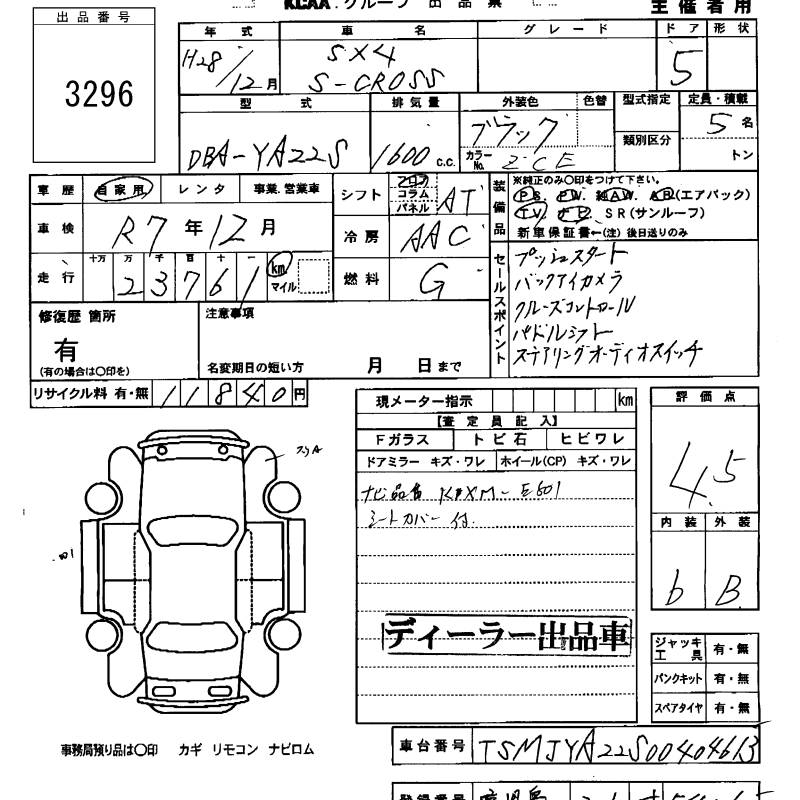 KCAA グループ 出品票
主催者用
出品番号
3296
年式 車名 グレード ドア 形状
H28/12月 SX4 S-CROSS 5
型式 排気量 外装色 色替 型式指定 定員・積載
類別区分
DBA-YA22S 1600 C.C. ブラック カラーNo. ZCE 5名
トン
車歴 自家用 レンタ 事業.営業車
シフト フロア コラム パネル AT
車検 R7年12月
冷房 AAC
走行 十万 万 千 百 十 一
23761 km マイル
燃料 G
装備品 ※純正のみ〇印をつけて下さい。
PS. PW. 純AW. AB(エアバック)
TV. ナビ. SR(サンルーフ)
新車保証書←(注)後日送りのみ
セールスポイント
プッシュスタート
バックアイカメラ
クルーズコントロール
パドルシフト
ステアリングオーディオスイッチ
修復歴 箇所
有
(有の場合は〇印を)
注意事項
名変期日の短い方 月 日まで
リサイクル料 有・無 11840円
現メーター指示 km
【査定員記入】
Fガラス トビ石 ヒビワレ
ドアミラー キズ・ワレ ホイール(CP) キズ・ワレ
ナビ品番 KXM-E601
シートカバー付
ディーラー出品車
評価点
4.5
内装 外装
b B
ジャッキ工具 有・無
パンクキット 有・無
スペアタイヤ 有・無
事務局預り品は〇印 カギ リモコン ナビロム
車台番号 TSMJYA22S00404613
登録番号 鹿児島